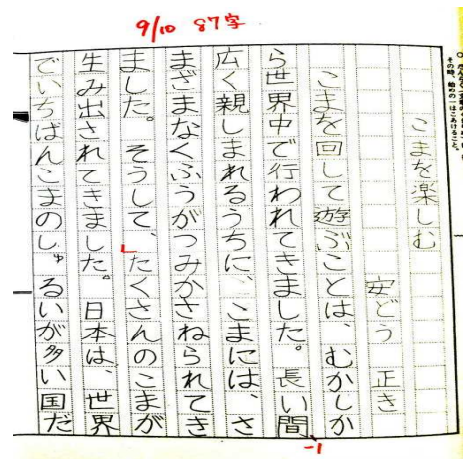 9/10 87字
こまを楽しむ
安どう 正き
こまを回して遊ぶことは、むかしか
ら世界中で行われてきました。長い間、
広く親しまれるうちに、こまには、さ
まざまなくふうがつみかさねられてき
ました。そうして、たくさんのこまが
生み出されてきました。日本は、世界
でいちばんこまのしゅるいが多い国だ
-1